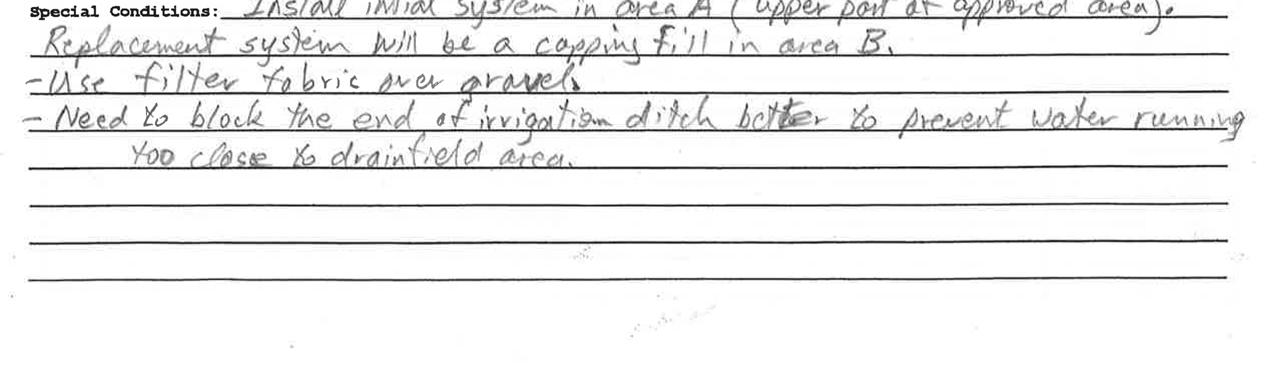 Special Conditions: Install initial system in area A (upper part of approved area).
Replacement system will be a capping fill in area B.
- Use filter fabric over gravel.
- Need to block the end of irrigation ditch better to prevent water running
too close to drainfield area.